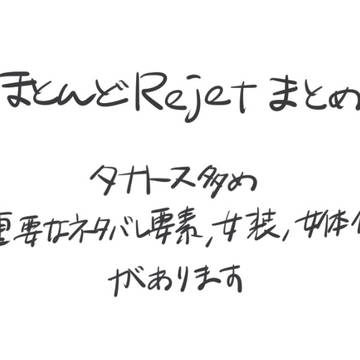 ほとんどRejetまとめ
タナトス多め
重要なネタバレ要素,女装,女体化
があります